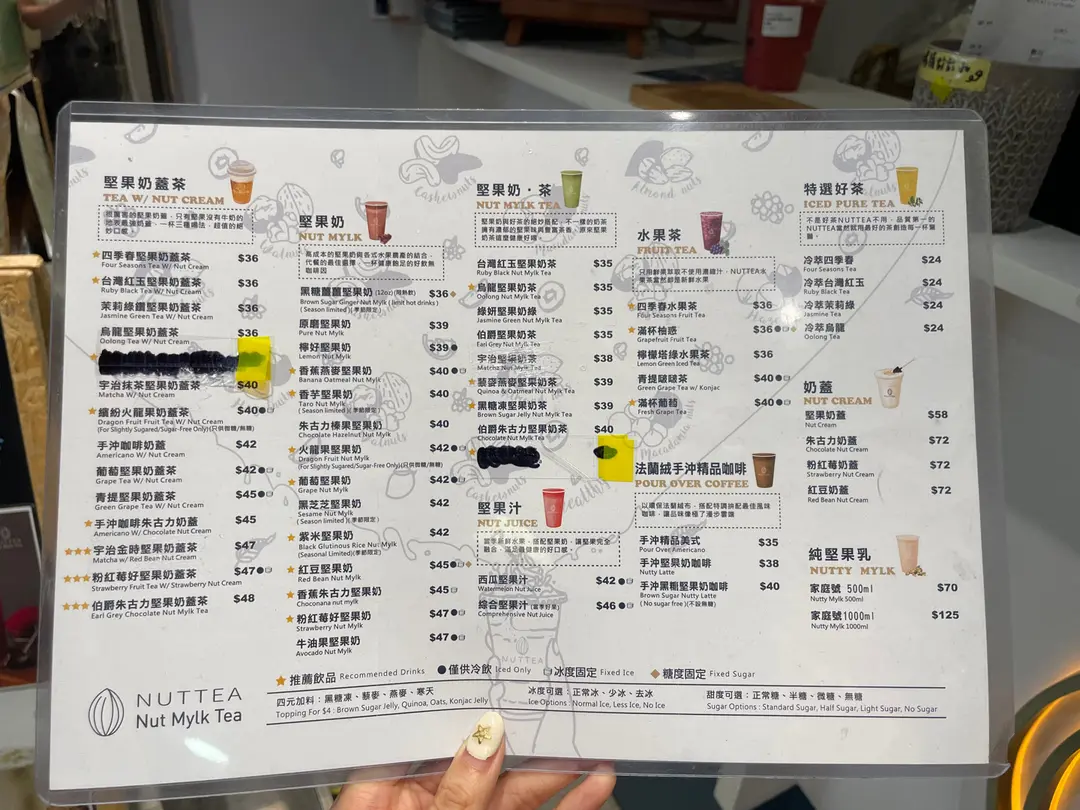 堅果奶蓋茶
TEA W/ NUT CREAM
四季春堅果奶蓋茶 $36
Four Seasons Tea W/ Nut Cream
台灣紅玉堅果奶蓋 $36
Ruby Black Tea W/ Nut Cream
茉莉綠鑽堅果奶蓋茶 $36
Jasmine Green Tea W/ Nut Cream
烏龍堅果奶蓋茶 $36
Oolong Tea W/ Nut Cream
宇治抹茶堅果奶蓋茶 $40
Matcha W/ Nut Cream
繽紛火龍果堅果奶蓋茶 $40
Dragon Fruit Fruit Tea W/ Nut Cream
(For Slightly Sugared/Sugar-Free Only)(只供微糖/無糖)
手沖咖啡奶蓋 $42
Americano W/ Nut Cream
葡萄堅果奶蓋茶 $42
Grape Tea W/ Nut Cream
青提堅果奶蓋茶 $45
Green Grape Tea W/ Nut Cream
手沖咖啡朱古力奶蓋 $45
Americano W/ Chocolate Nut Cream
宇治金時堅果奶蓋茶 $47
Matcha w/ Red Bean Nut Cream
粉紅莓好堅果奶蓋茶 $47
Strawberry Fruit Tea W/ Strawberry Nut Cream
伯爵朱古力堅果奶蓋茶 $48
Earl Grey Chocolate Nut Mylk Tea
堅果奶
NUT MYLK
高成本的堅果奶與各式水果農產的結合，
代餐的最佳選擇，一杯健康飽足的好飲無
咖啡因
黑糖薑薑堅果奶 (12oz)(限熱飲) $36
Brown Sugar Ginger Nut Mylk ( limit hot drinks )
( Season limited )( 季節限定 )
原磨堅果奶 $39
Pure Nut Mylk
檸好堅果奶 $39
Lemon Nut Mylk
香蕉燕麥堅果奶 $40
Banana Oatmeal Nut Mylk
香芋堅果奶 $40
Taro Nut Mylk
( Season limited )( 季節限定 )
朱古力榛果堅果奶 $40
Chocolate Hazelnut Nut Mylk
火龍果堅果奶 $42
Dragon Fruit Nut Mylk
(For Slightly Sugared/Sugar-Free Only)(只供微糖/無糖)
葡萄堅果奶 $42
Grape Nut Mylk
黑芝芝堅果奶 $42
Sesame Nut Mylk
( Season limited )( 季節限定 )
紫米堅果奶 $42
Black Glutinous Rice Nut Mylk
(Seasonal Limited)(季節限定)
紅豆堅果奶 $45
Red Bean Nut Mylk
香蕉朱古力堅果奶 $45
Choconana nut mylk
粉紅莓好堅果奶 $47
Strawberry Nut Mylk
牛油果堅果奶 $47
Avocado Nut Mylk
堅果奶・茶
NUT MYLK TEA
堅果奶與好茶的絕妙搭配，不一樣的奶茶
擁有濃郁的堅果味與豐富茶香，原來堅果
奶茶這麼健康好喝。
台灣紅玉堅果奶 $35
Ruby Black Nut Mylk Tea
烏龍堅果奶 $35
Oolong Nut Mylk Tea
綠妍堅果奶綠 $35
Jasmine Green Nut Mylk Tea
伯爵堅果奶 $35
Earl Grey Nut Mylk Tea
宇治堅果奶茶 $38
Matcha Nut Mylk Tea
藜麥燕麥堅果奶茶 $39
Quinoa & Oatmeal Nut Mylk Tea
黑糖凍堅果奶茶 $39
Brown Sugar Jelly Nut Mylk Tea
伯爵朱古力堅果奶茶 $40
Chocolate Nut Mylk Tea
堅果汁
NUT JUICE
當季新鮮水果、搭配堅果奶，讓堅果完全
融合、滿足最健康的好口感
西瓜堅果汁 $42
Watermelon Nut Juice
綜合堅果汁 (當季好果) $46
Comprehensive Nut Juice
水果茶
FRUIT TEA
只用鮮果萃取不使用濃縮汁，NUTTEA水
果茶當然都是新鮮水果
四季春水果茶 $36
Four Seasons Fruit Tea
滿杯柚惑 $36
Grapefruit Fruit Tea
檸檬塔綠水果茶 $36
Lemon Green Iced Tea
青提啵啵茶 $40
Green Grape Tea w/ Konjac
滿杯葡萄 $40
Fresh Grape Tea
法蘭絨手沖精品咖啡
POUR OVER COFFEE
以環保法蘭絨布，搭配特調拼配最佳風味
咖啡，讓品味像極了漫步雲端
手沖精品美式 $35
Pour Over Americano
手沖堅果奶咖啡 $38
Nutty Latte
手沖黑糖堅果奶咖啡 $40
Brown Sugar Nutty Latte
( No sugar free )(不設無糖)
特選好茶
ICED PURE TEA
不是好茶NUTTEA不用，品質第一的
NUTTEA當然就用最好的茶創造每一杯驚
豔。
冷萃四季春 $24
Four Seasons Tea
冷萃台灣紅玉 $24
Ruby Black Tea
冷萃茉莉綠 $24
Jasmine Green Tea
冷萃烏龍 $24
Oolong Tea
奶蓋
NUT CREAM
堅果奶蓋 $58
Nut Cream
朱古力奶蓋 $72
Chocolate Nut Cream
粉紅莓奶蓋 $72
Strawberry Nut Cream
紅豆奶蓋 $72
Red Bean Nut Cream
純堅果乳
NUTTY MYLK
家庭號 500ml $70
Nutty Mylk 500ml
家庭號1000ml $125
Nutty Mylk 1000ml
推薦飲品 Recommended Drinks 僅供冷飲 Iced Only 冰度固定 Fixed Ice 糖度固定 Fixed Sugar
NUTTEA
Nut Mylk Tea
四元加料：黑糖凍、藜麥、燕麥、寒天
Topping For $4 : Brown Sugar Jelly, Quinoa, Oats, Konjac Jelly
冰度可選：正常冰、少冰、去冰
Ice Options : Normal Ice, Less Ice, No Ice
甜度可選：正常糖、半糖、微糖、無糖
Sugar Options : Standard Sugar, Half Sugar, Light Sugar, No Sugar
NUTTEA